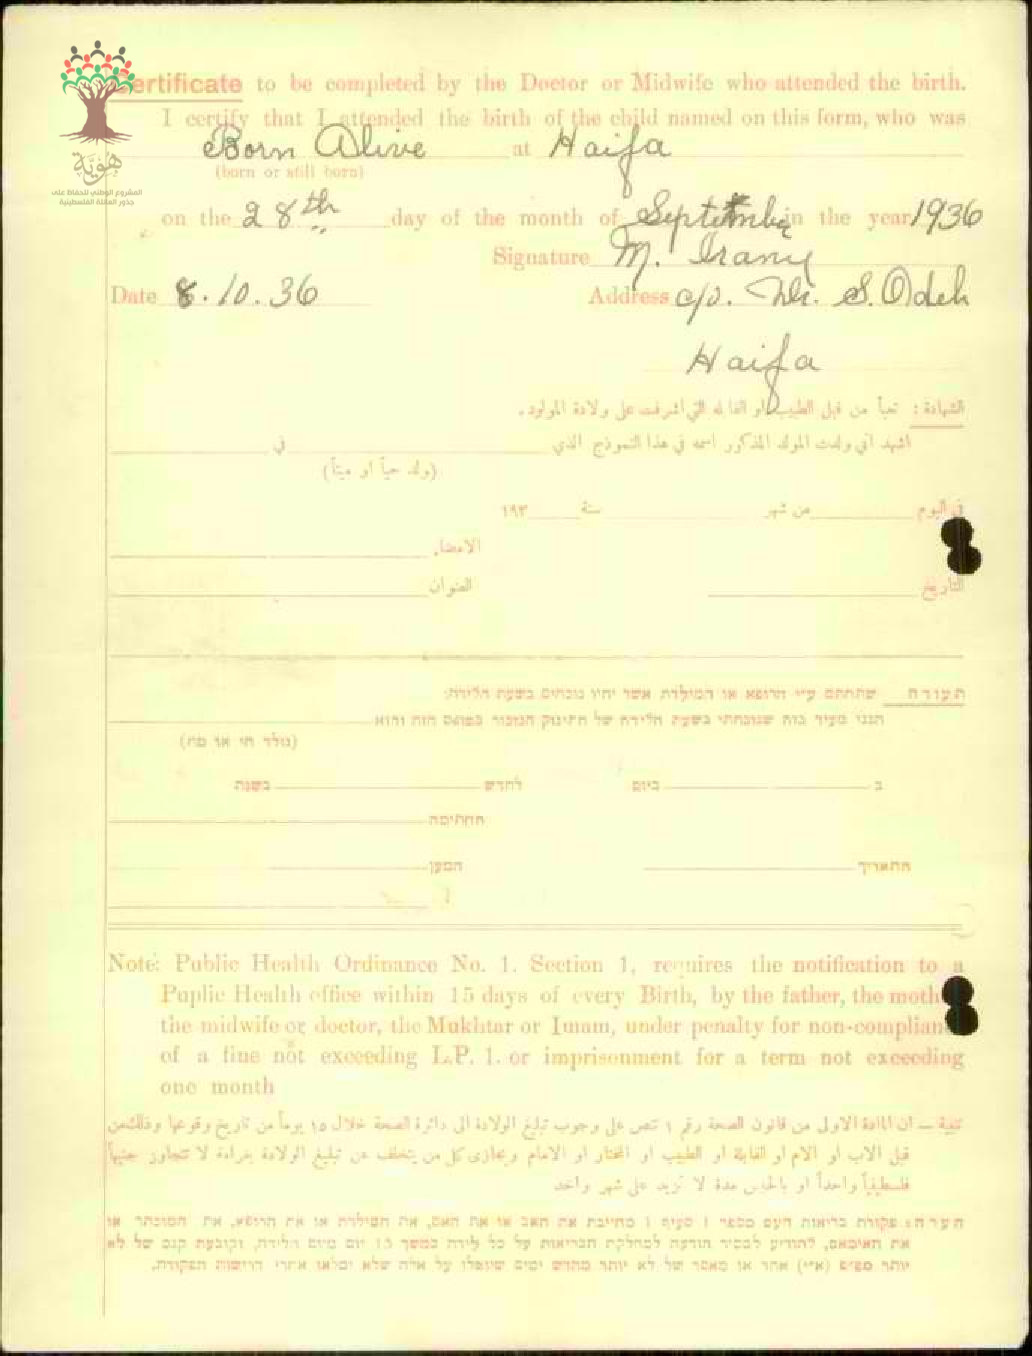 هُوِيَّة
المشروع الوطني للحفاظ على
جذور العائلة الفلسطينية
Certificate to be completed by the Doctor or Midwife who attended the birth.
I certify that I attended the birth of the child named on this form, who was
Born Alive at Haifa
(born or still born)
on the 28th day of the month of September in the year 1936
Signature M. Irany
Date 8.10.36 Address c/o. Dr. S. Odeh
Haifa
الشهادة: تعبأ من قبل الطبيب او القابلة التي اشرفت على ولادة المولود.
اشهد اني ولدت المولد المذكور اسمه في هذا النموذج الذي في
(ولد حياً او ميتاً)
في اليوم من شهر سنة ١٩٣
الامضاء.
التاريخ العنوان
תעודה שתחתם ע״י הרופא או המילדת אשר יהיו נוכחים בשעת הלידה:
הנני מעיד בזה שנוכחתי בשעת הלידה של התינוק הנזכר בטופס הזה והוא
(נולד חי או מת)
ב ביום לחדש בשנת
החתימה
התאריך המען
Note: Public Health Ordinance No. 1. Section 1, requires the notification to a
Puplic Health office within 15 days of every Birth, by the father, the moth
the midwife or doctor, the Mukhtar or Imam, under penalty for non-complian
of a fine not exceeding L.P. 1. or imprisonment for a term not exceeding
one month
تنبيه – ان المادة الاولى من قانون الصحة رقم ١ تنص على وجوب تبليغ الولادة الى دائرة الصحة خلال ١٥ يوماً من تاريخ وقوعها وذلك من
قبل الاب او الام او القابلة او الطبيب او المختار او الامام ويجازى كل من يتخلف عن تبليغ الولادة بغرامة لا تتجاوز جنيهاً
فلسطينياً واحداً او بالحبس مدة لا تزيد على شهر واحد
הערה: פקודת בריאות העם מספר 1 סעיף 1 מחייבת את האב או את האם, את המילדת או את הרופא, את המוכתר או
את האימאם, להודיע למסיר הודעה למחלקת הבריאות על כל לידה במשך 15 יום מיום הלידה, וקובעת קנס של לא
יותר מפ״ם (א״י) אחד או מאסר של לא יותר מחדש ימים שיוטלו על אלה שלא ימלאו אחרי דרישות הפקודה.